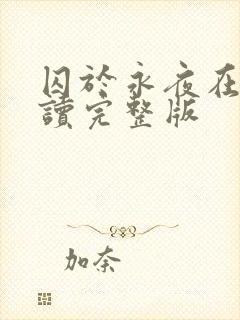 囚於永夜在
讀完整版
加奈